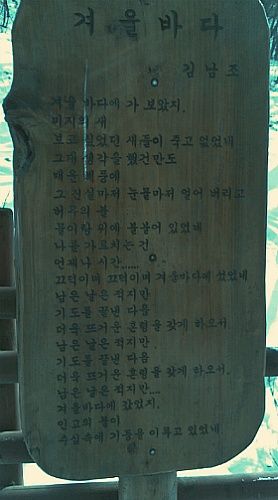 겨울바다
김남조
겨울 바다에 가 보았지.
미지의 새
보고 싶었던 새들이 죽고 없었네
그대 생각을 했건만도
매운 해풍에
그 진실마저 눈물마저 얼어 버리고
허무의 불
물이랑 위에 불붙어 있었네
나를 가르치는 건
언제나 시간......
끄덕이며 끄덕이며 겨울바다에 섰었네
남은 날은 적지만
기도를 끝낸 다음
더욱 뜨거운 혼령을 갖게 하오서
남은 날은 적지만.
기도를 끝낸 다음
더욱 뜨거운 혼령을 갖게 하오서.
남은 날은 적지만....
겨울바다에 갔었지.
인고의 물이
수심속에 기둥을 이루고 있었네